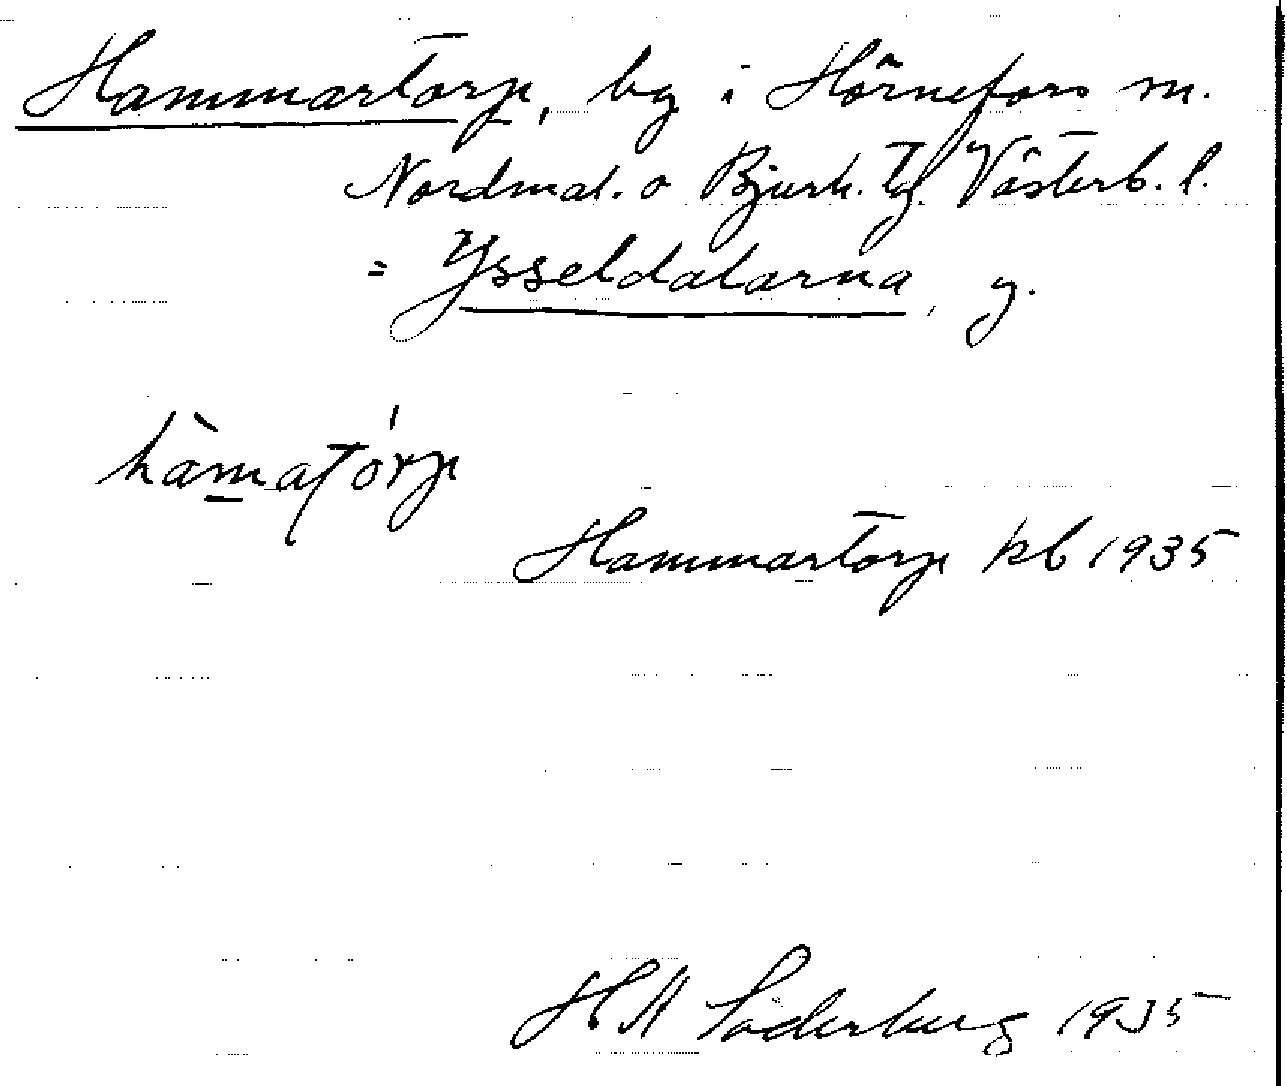 Hammartorp, by i Hörnefors sn.
Nordmal. o Bjurh. tg Västerb. l.
= Ysseldalarna, g.
hàmatórp
Hammartorp kb 1935
H A Söderberg 1935